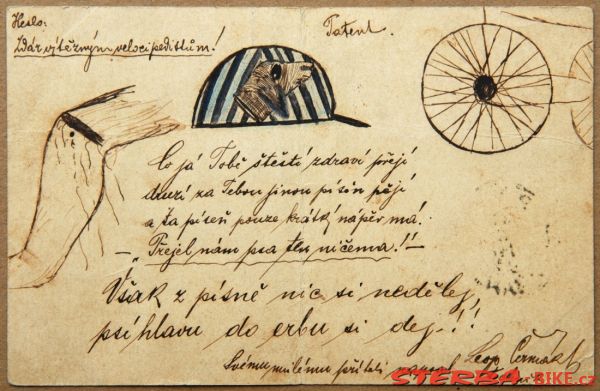 Heslo:
Zdar výtěžným velocipedistům!
Patent.
Co já Tobě štěstí zdraví přeji
druzí za Tebou jinou písěn pějí
a ta píseň pouze krátký nápěv má!
– „Přejel nám psa ten ničema!!" –
Však z písně nic si nedělej,
psí hlavu do erbu si dej –!!
Svému milému příteli
Leop. Čermák
STERBA-BIKE.cz